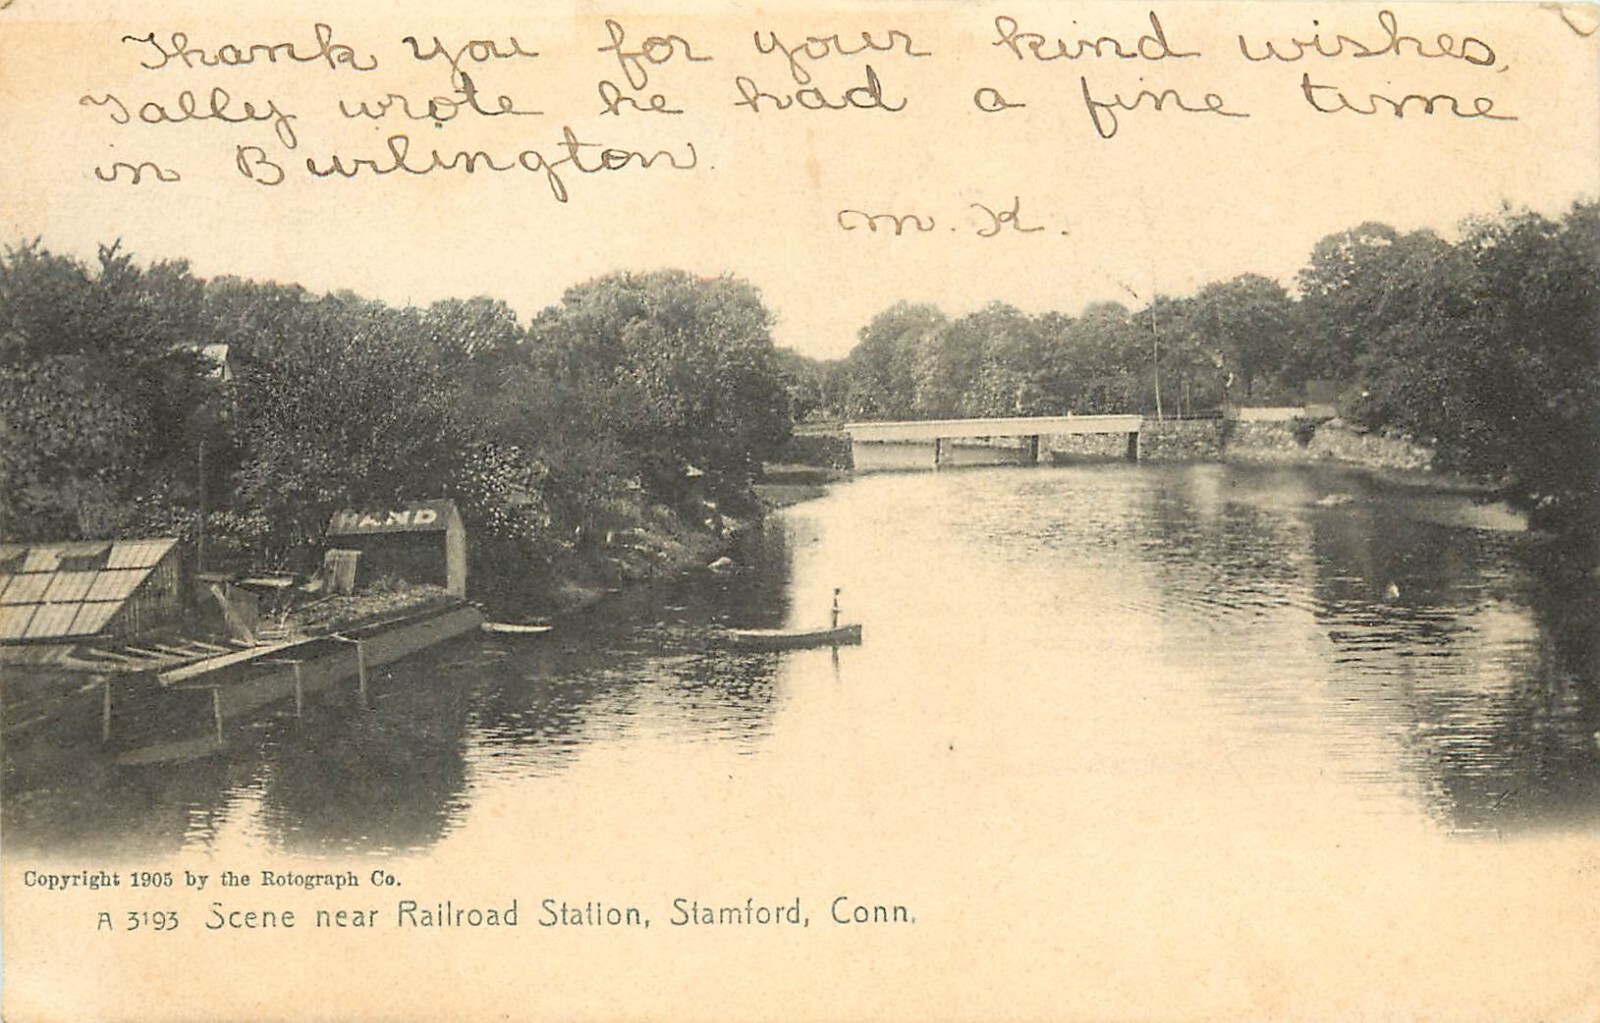 Thank you for your kind wishes,
Tally wrote he had a fine time
in Burlington.
M. K.
HAND
Copyright 1905 by the Rotograph Co.
A 3193 Scene near Railroad Station, Stamford, Conn.